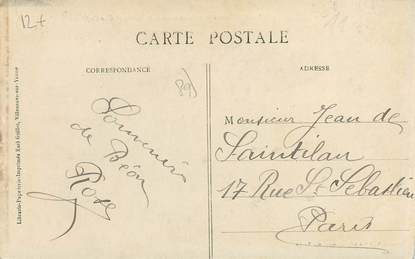 12+
CARTE POSTALE
CORRESPONDANCE
ADRESSE
89)
Souvenir
de Béon
Rose
Monsieur Jean de
Saintilan
17 Rue St Sebastien
Paris
Librairie-Papeterie-Imprimerie Villeneuve-sur-Yonne